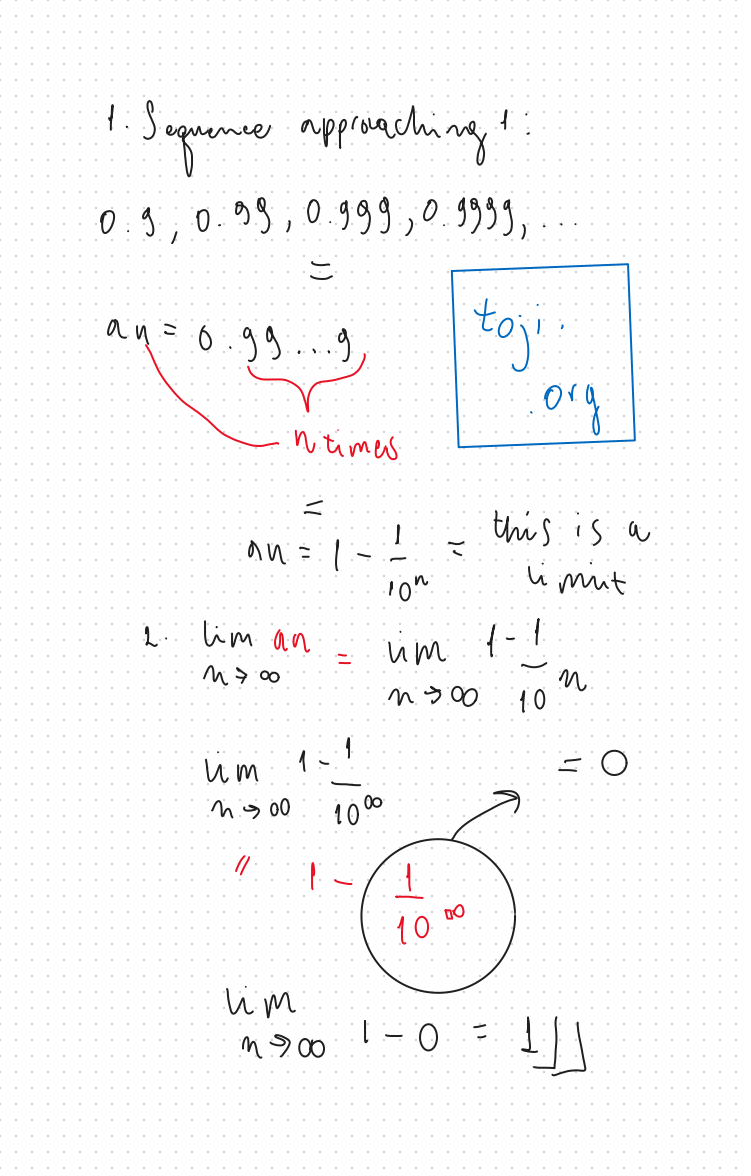 1. Sequence approaching 1:
0.9, 0.99, 0.999, 0.9999, ...
=
an = 0.99...9
toji.
.org
n times
=
an = 1 - 1/10^n = this is a
limit
2. lim an = lim 1 - 1/10 n
n→∞ n→∞
lim 1 - 1/10^∞ = 0
n→∞
" 1 - 1/10^∞
lim
n→∞ 1 - 0 = 1